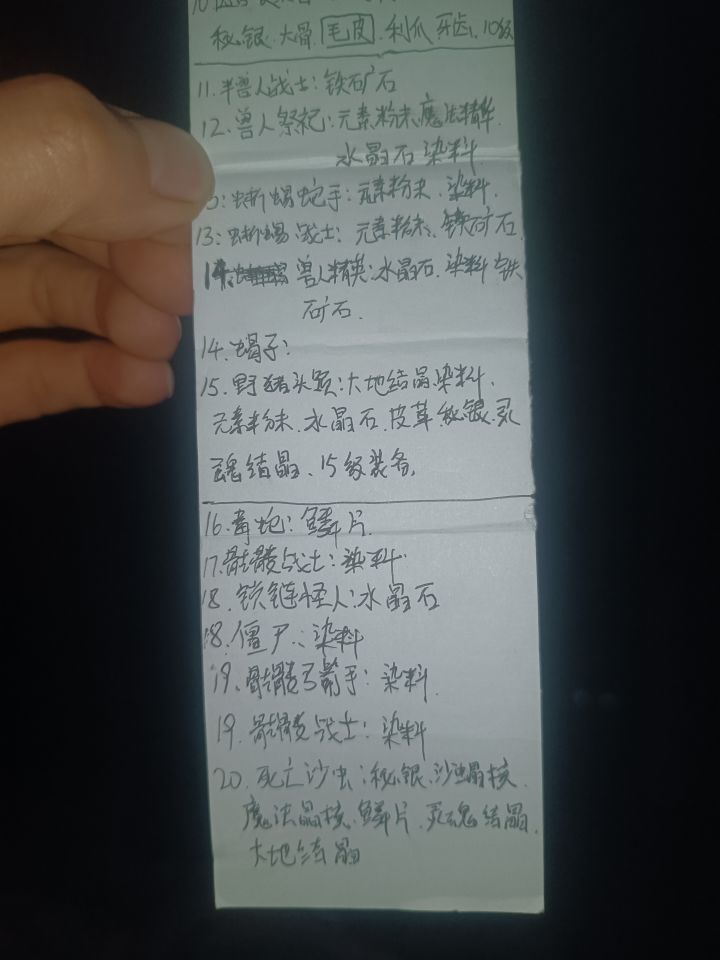 秘银.大骨.毛皮.利爪.牙齿.10级
11.半兽人战士:铁矿石
12.兽人祭祀:元素粉末.魔法精华
水晶石.染料
蜥蜴蛇手:元素粉末.染料.
13:蜥蜴战士:元素粉末.铁矿石
14.兽人精英:水晶石.染料.铁
矿石.
14.蝎子:
15.野猪头领:大地结晶.染料.
元素粉末.水晶石.皮革.秘银.灵
魂结晶.15级装备.
16.毒蛇:鳞片.
17.骷髅战士:染料.
18.锁链怪人:水晶石
18.僵尸:染料
19.骷髅弓箭手:染料.
19.骷髅战士:染料
20.死亡沙虫:秘银.沙虫晶核.
魔法晶核.鳞片.灵魂结晶.
大地结晶